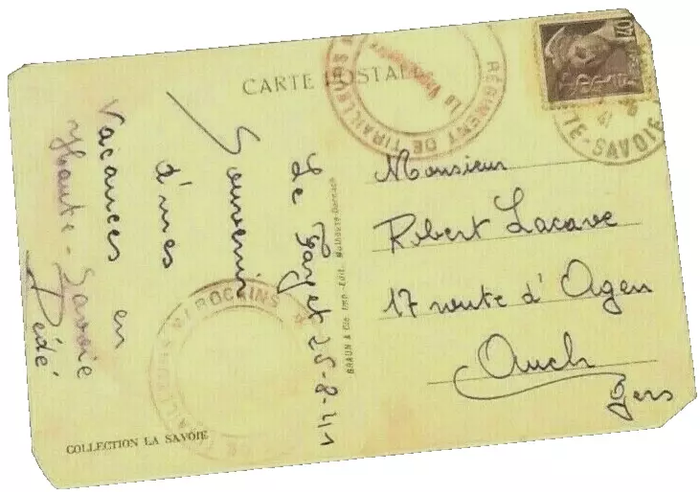 CARTE POSTALE
Le Fayet 25-8-41
Souvenir
d'mes
Vacances en
Haute-Savoie
Dédé
Monsieur
Robert Lacave
17 route d'Agen
Auch
Gers
RÉGIMENT DE TIRAILLEURS
TIRAILLEURS MAROCAINS
E-SAVOIE
BRAUN & Cie Imp.-Édit. Mulhouse-Dornach
COLLECTION LA SAVOIE